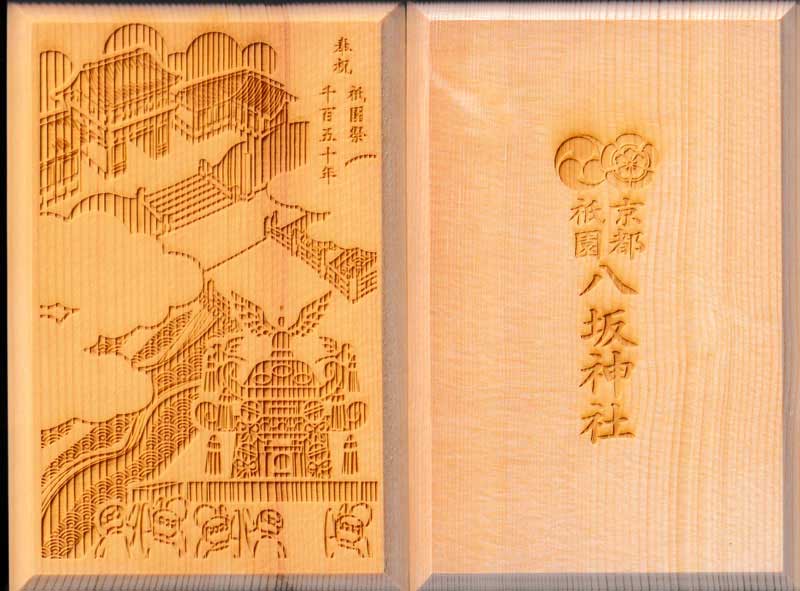 奉祝
祇園祭
千百五十年
京都
祇園
八坂神社